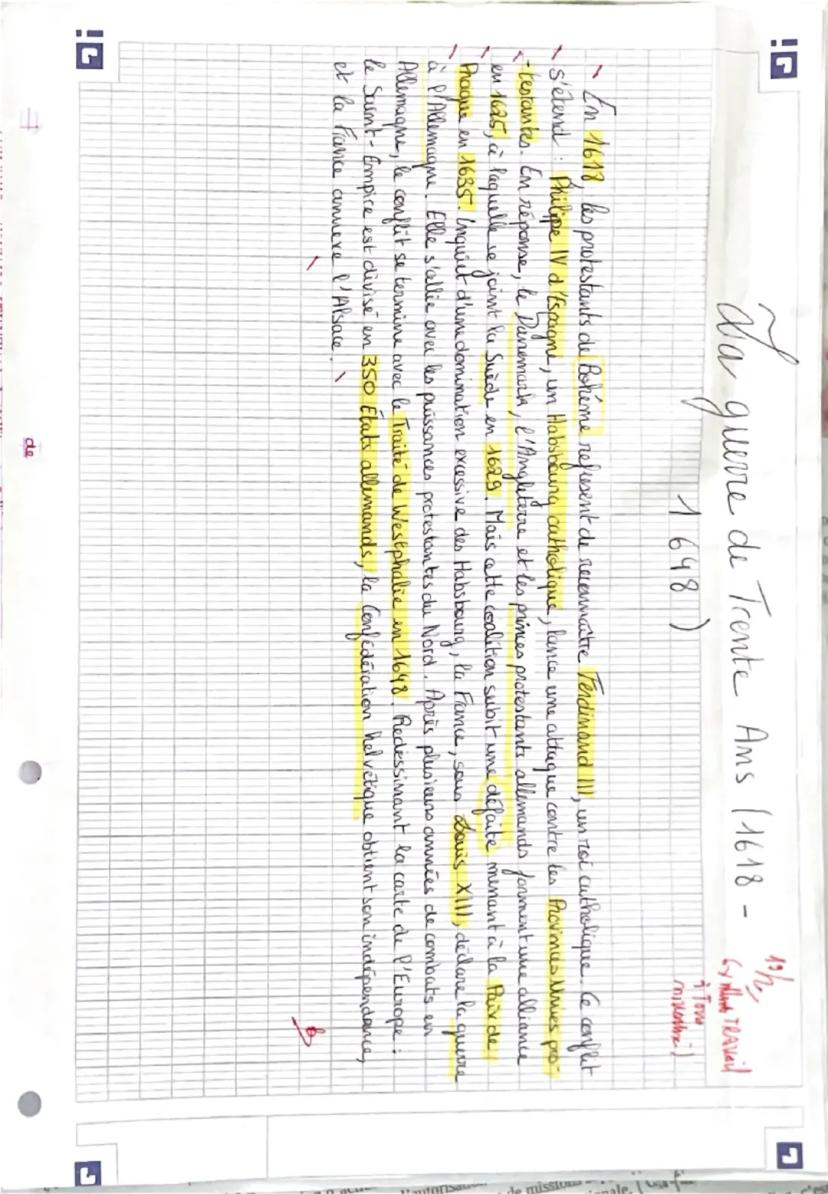 La guerre de Trente Ans (1618 -
1648)
19/20
TRAVAIL
En 1618, les protestants de Bohème refusent de reconnaître Ferdinand III, un roi catholique. Ce conflit
s'étend : Philippe IV d'Espagne, un Habsbourg catholique, lance une attaque contre les Provinces Unies pro-
-testantes. En réponse, le Danemark, l'Angleterre et les princes protestants allemands forment une alliance
en 1625, à laquelle se joint la Suède en 1629. Mais cette coalition subit une défaite menant à la Paix de
Prague en 1635. Inquiet d'une domination excessive des Habsbourg, la France, sous Louis XIII, déclare la guerre
à l'Allemagne. Elle s'allie avec les puissances protestantes du Nord. Après plusieurs années de combats en
Allemagne, le conflit se termine avec le Traité de Westphalie en 1648. Redessinant la carte de l'Europe :
le Saint-Empire est divisé en 350 États allemands, la Confédération helvétique obtient son indépendance,
et la France annexe l'Alsace.
de